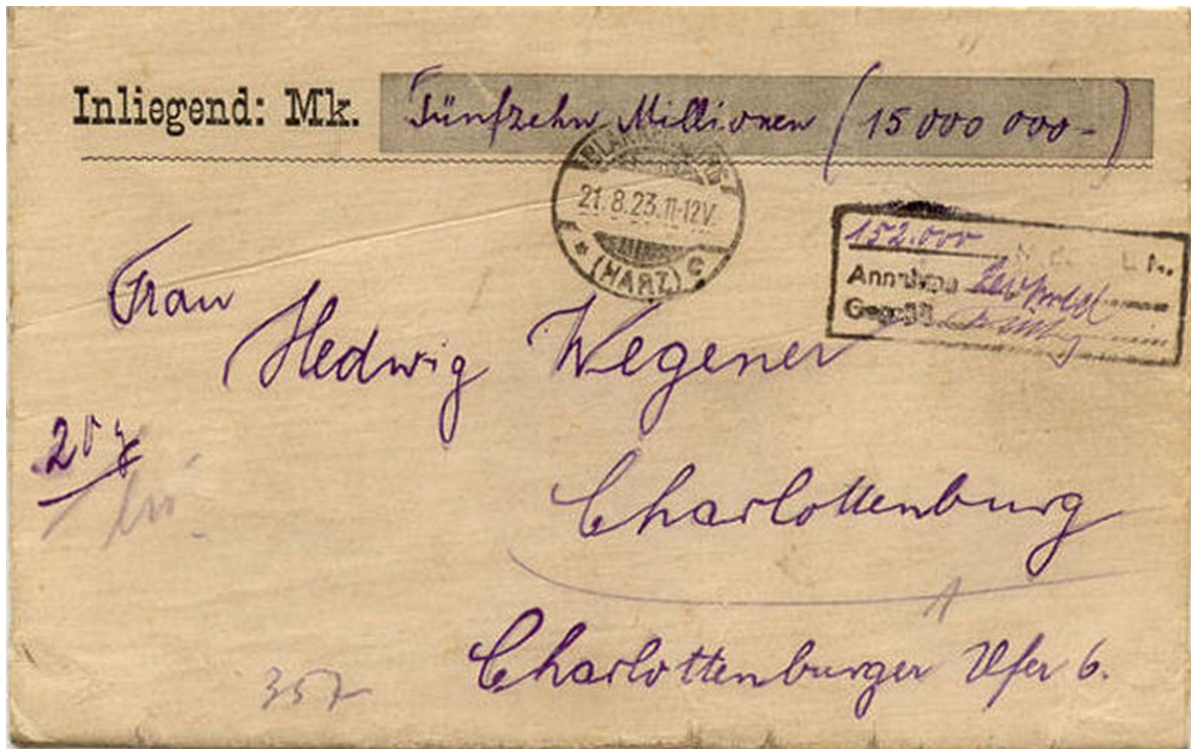 Inliegend: Mk. Fünfzehn Millionen (15 000 000-)
21.8.23.11-12V.
* (HARZ) c
152.000
Annahme
Frau
Hedwig Wegener
20 g
Charlottenburg
Charlottenburger Ufer 6.
357